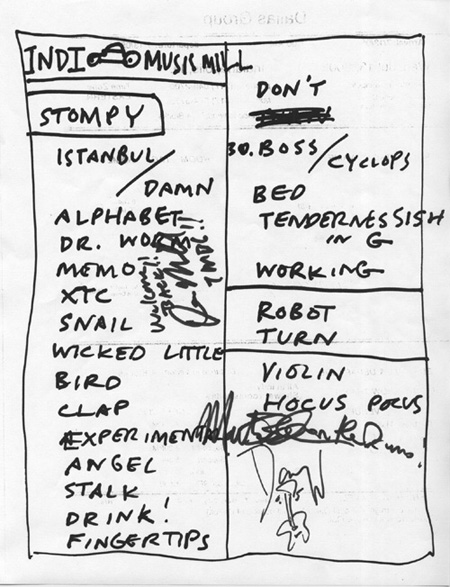 INDI MUSIC MILL
STOMPY
ISTANBUL/
DAMN
ALPHABET
DR. WORM
MEMO
XTC
SNAIL
WICKED LITTLE
BIRD
CLAP
EXPERIMENTAL
ANGEL
STALK
DRINK!
FINGERTIPS
Welcome!!
BACK!!
TMBG!!
DON'T
30. BOSS/CYCLOPS
BED
TENDERNESSISH
IN G
WORKING
ROBOT
TURN
VIOLIN
HOCUS POCUS